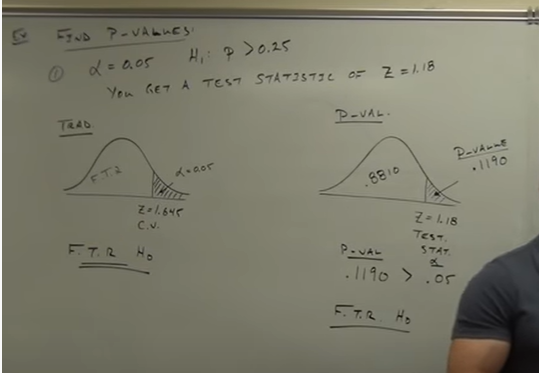 Ex FIND P-VALUES:
① α = 0.05 H₁: P > 0.25
YOU GET A TEST STATISTIC OF Z = 1.18
TRAD.
F.T.R
α=0.05
Z=1.645
C.V.
F.T.R H₀
P-VAL.
.8810
P-VALUE
.1190
Z=1.18
TEST.
STAT.
P-VAL α
.1190 > .05
F.T.R. H₀